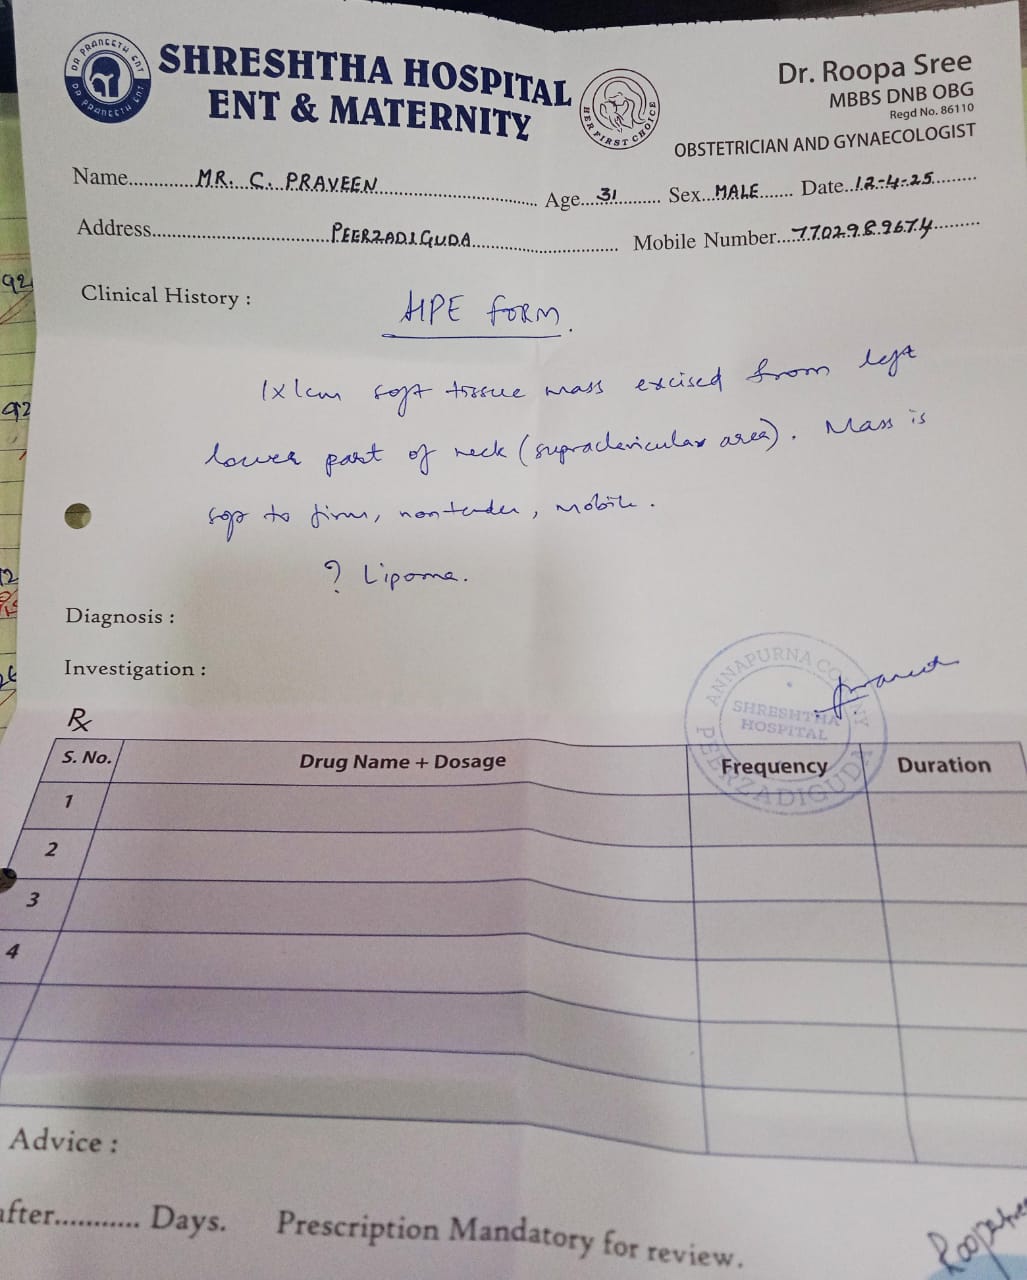 DR PRANEETH ENT
DR PRANEETH ENT
SHRESHTHA HOSPITAL
ENT & MATERNITY
HER FIRST CHOICE
Dr. Roopa Sree
MBBS DNB OBG
Regd No. 86110
OBSTETRICIAN AND GYNAECOLOGIST
Name............MR. C. PRAVEEN............ Age...31........... Sex...MALE....... Date..12-4-25.........
Address.............................PEERZADIGUDA............................. Mobile Number...7702989674.........
Clinical History :
HPE FORM.
1x1cm soft tissue mass excised from left
lower part of neck (supraclavicular area). Mass is
to firm, nontender, mobile.
? Lipoma.
Diagnosis :
Investigation :
ANNAPURNA COLONY
SHRESHTHA
HOSPITAL
PEERZADIGUDA
Rx
S. No. Drug Name + Dosage Frequency Duration
1
2
3
4
Advice :
after........... Days. Prescription Mandatory for review.